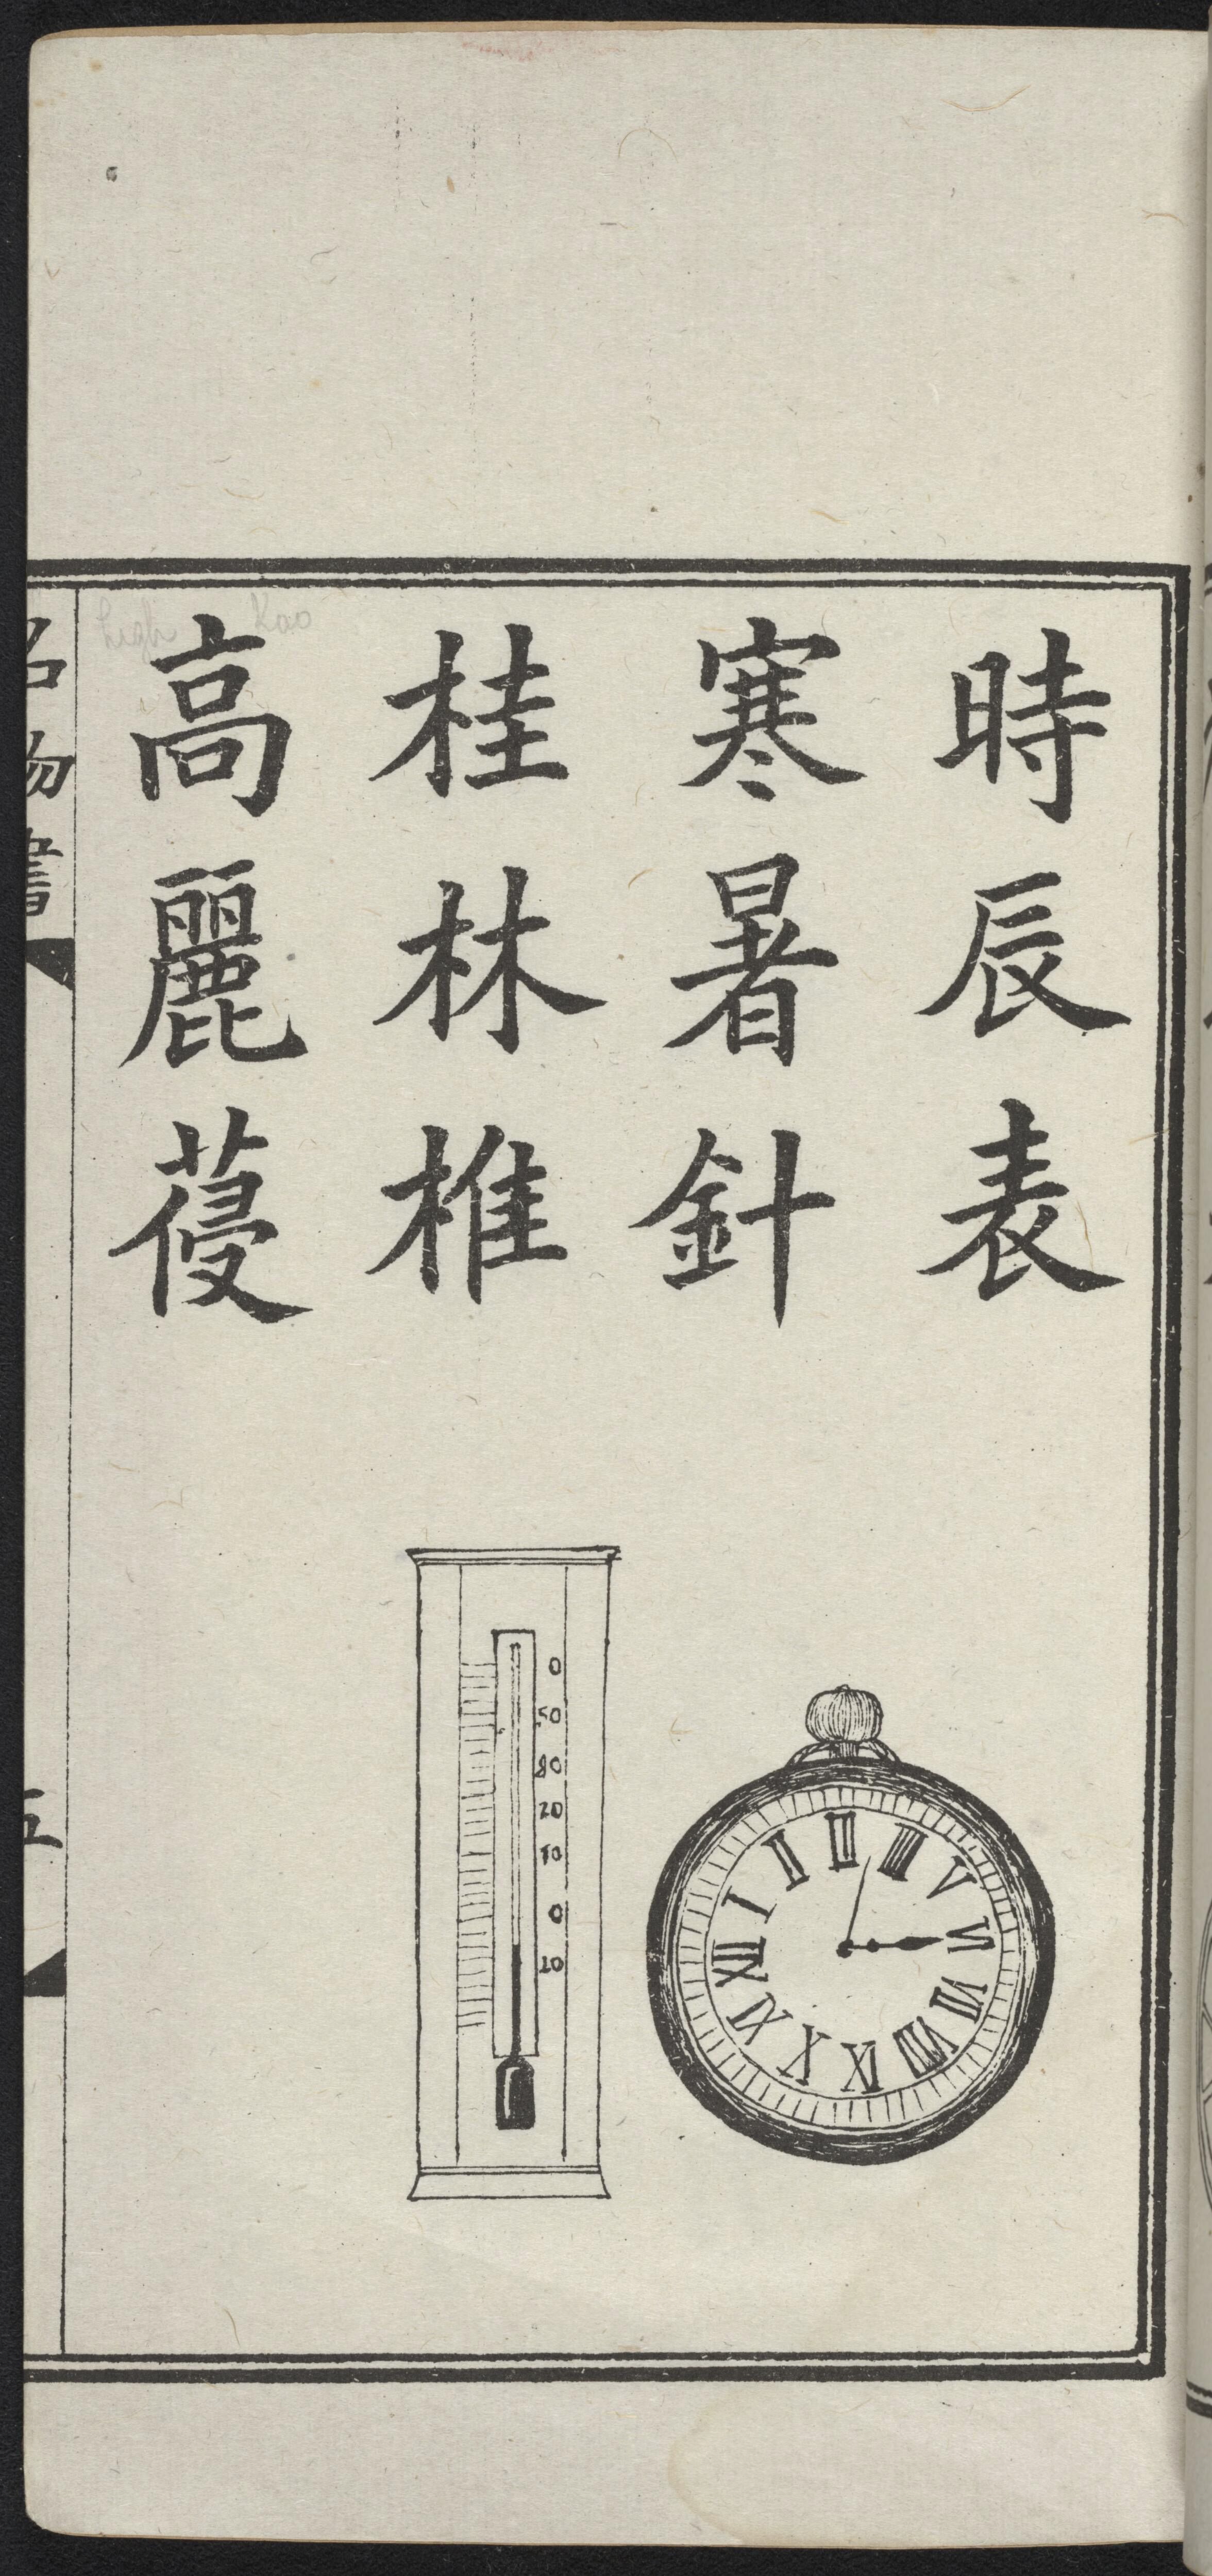 時辰表
寒暑針
桂林椎
高麗葠
Kao
high
名物書
五
0
50
80
20
10
0
10
I
II
III
IIII
V
VI
VII
VIII
IX
X
XI
XII